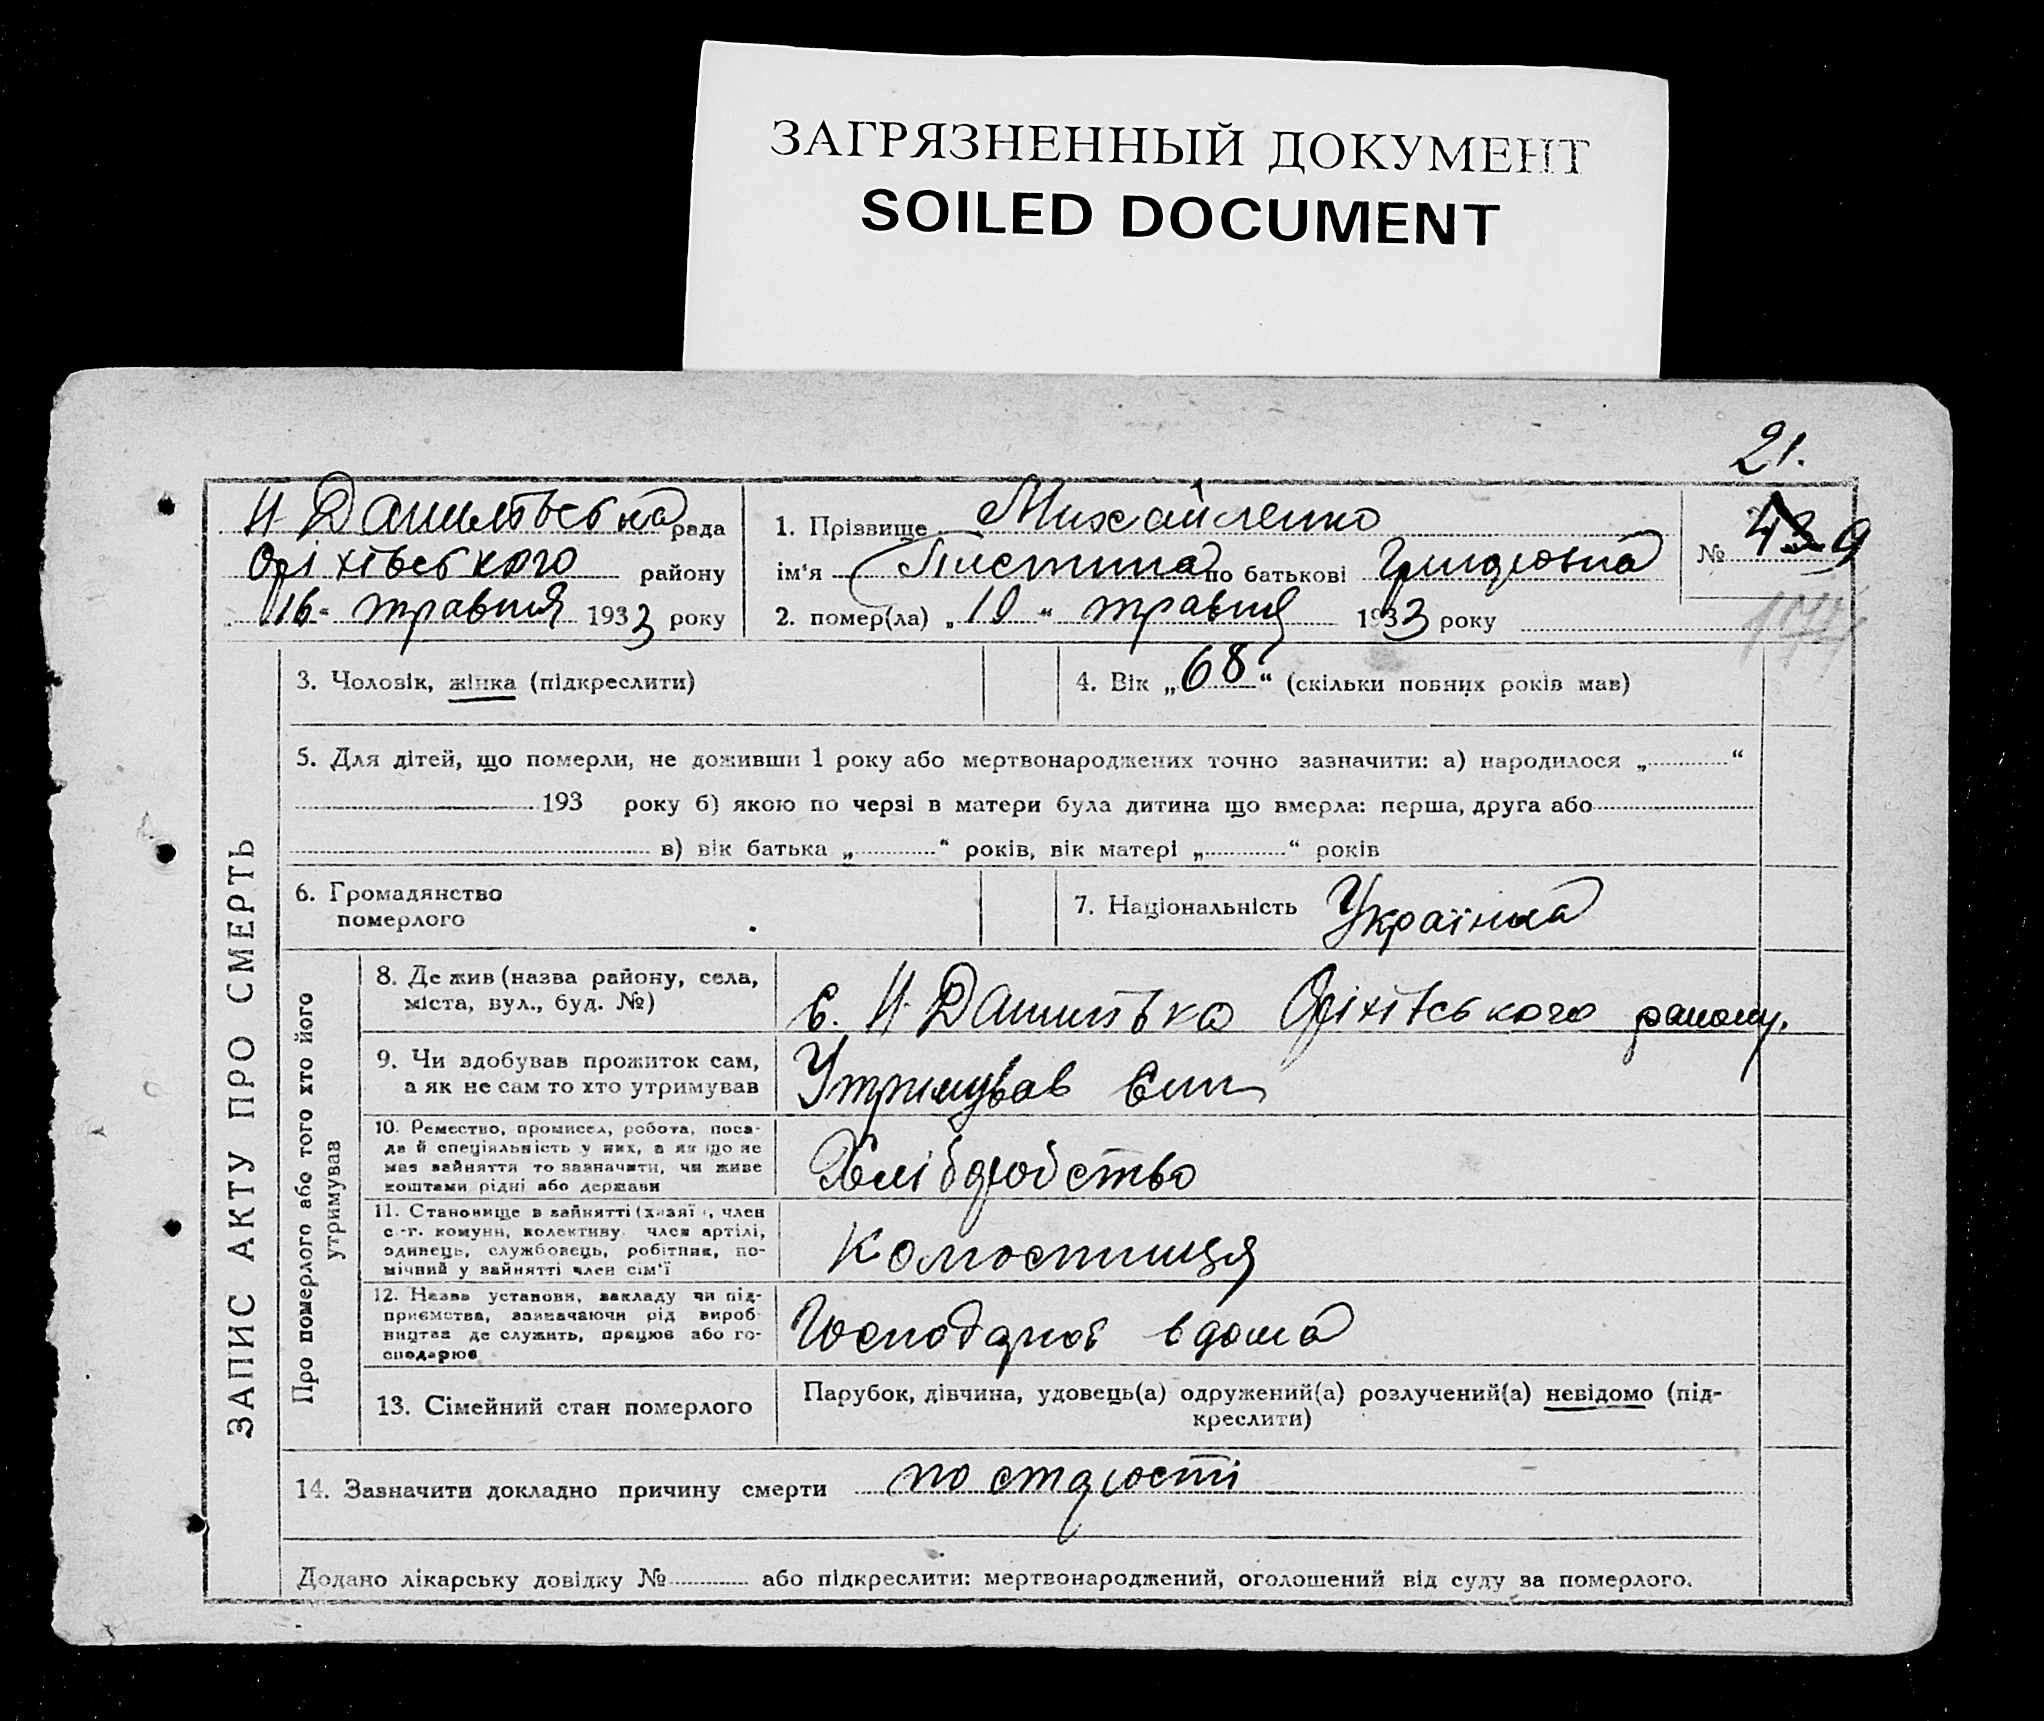 ЗАГРЯЗНЕННЫЙ ДОКУМЕНТ
SOILED DOCUMENT
21.
Н Данилівська рада
Оріхівського району
16 " травня 1933 року
1. Прізвище Михайленко
ім'я Пистина по батькові Григоровна
2. помер(ла) „ 10 " травня 1933 року
№ 43 9
3. Чоловік, жінка (підкреслити)
4. Вік „ 68 " (скільки повних років мав)
5. Для дітей, що померли, не доживши 1 року або мертвонароджених точно зазначити: а) народилося „ "
193 року б) якою по черзі в матери була дитина що вмерла: перша, друга або
в) вік батька „ " років, вік матері „ " років
6. Громадянство
померлого
7. Національність Українка
ЗАПИС АКТУ ПРО СМЕРТЬ
Про померлого або того хто його
утримував
8. Де жив (назва району, села,
міста, вул., буд. №)
с. Н Данилівка Оріхівського району.
9. Чи здобував прожиток сам,
а як не сам то хто утримував
Утримував син
10. Ремество, промисел, робота, поса-
да й спеціяльність у них, а якщо не
мав зайняття то зазначити, чи живе
коштами рідні або держави
Хліборобство
11. Становище в зайнятті (хазяї , член
с.-г. комуни, колективу член артілі,
одинець, службовець, робітник, по-
мічний у зайнятті член сім'ї
Колгоспниця
12. Назва установи, закладу чи під-
приємства, зазначаючи рід вироб-
ництва де служить, працює або го-
сподарює
Господарює вдома
13. Сімейний стан померлого
Парубок, дівчина, удовець(а) одружений(а) розлучений(а) невідомо (під-
креслити)
14. Зазначити докладно причину смерти по старості
Додано лікарську довідку № або підкреслити: мертвонароджений, оголошений від суду за померлого.